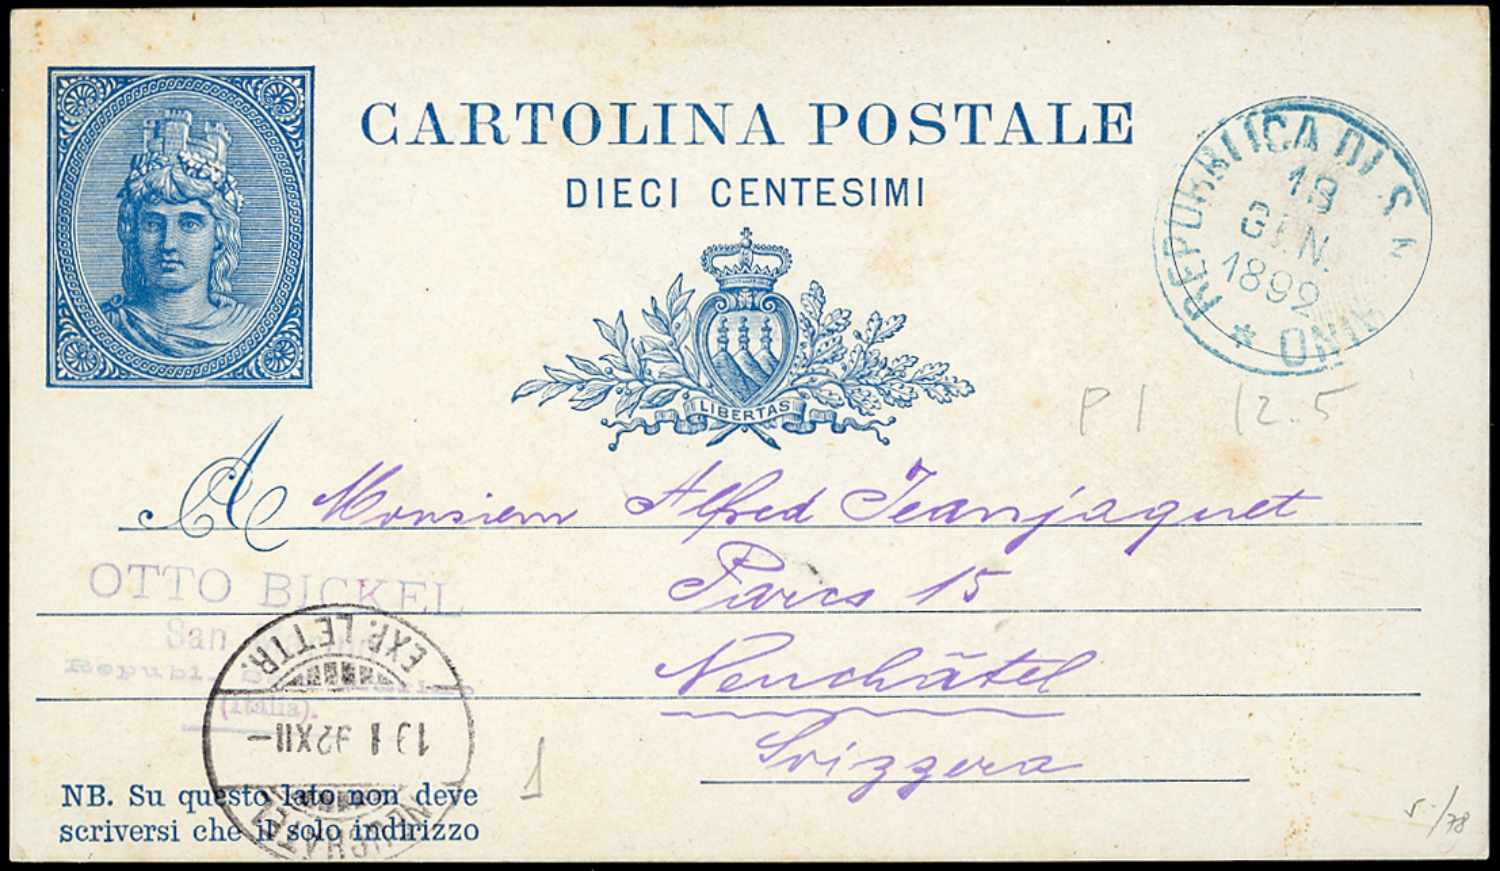 CARTOLINA POSTALE
DIECI CENTESIMI
REPUBBLICA DI S. M RINO *
GEN.
1892
LIBERTAS
P 1 12.5
A Monsieur Alfred Jeanjaquet
Parcs 15
Neuchâtel
Svizzera
OTTO BICKEL
San
Republ. S.
(Italia).
EXP. LETTR.
XII-
NEUCHATEL
1
NB. Su questo lato non deve
scriversi che il solo indirizzo
5-/78